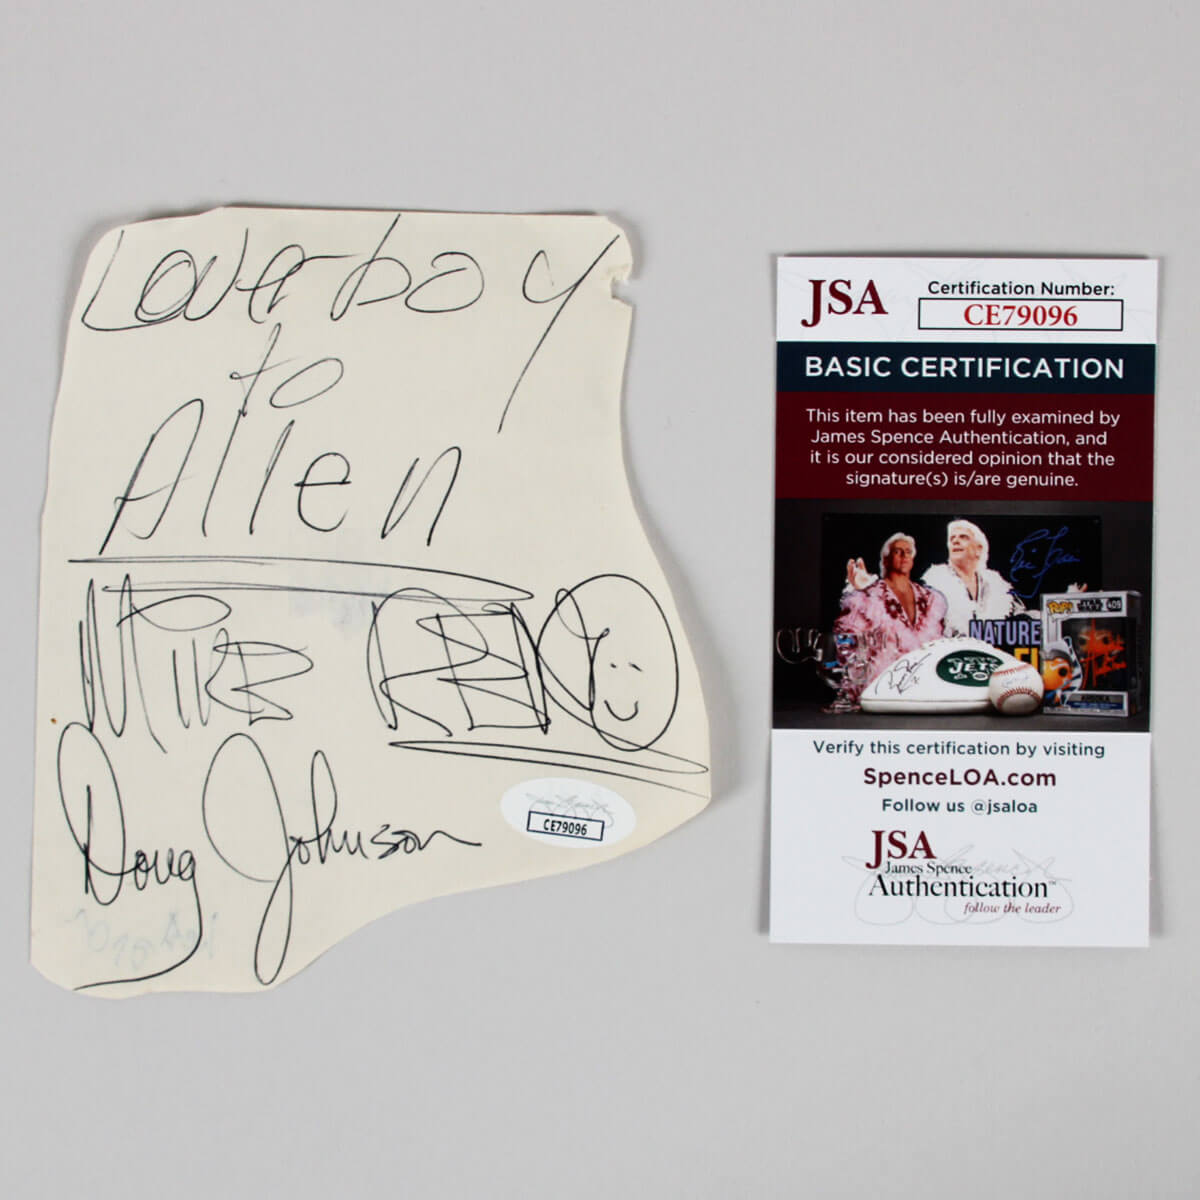 Loverboy
to
Allen
MIKE RENO
Doug Johnson
CE79096
JSA
Certification Number:
CE79096
BASIC CERTIFICATION
This item has been fully examined by
James Spence Authentication, and
it is our considered opinion that the
signature(s) is/are genuine.
NATURE
JETS
POP!
409
Verify this certification by visiting
SpenceLOA.com
Follow us @jsaloa
JSA
James Spence
Authentication™
follow the leader